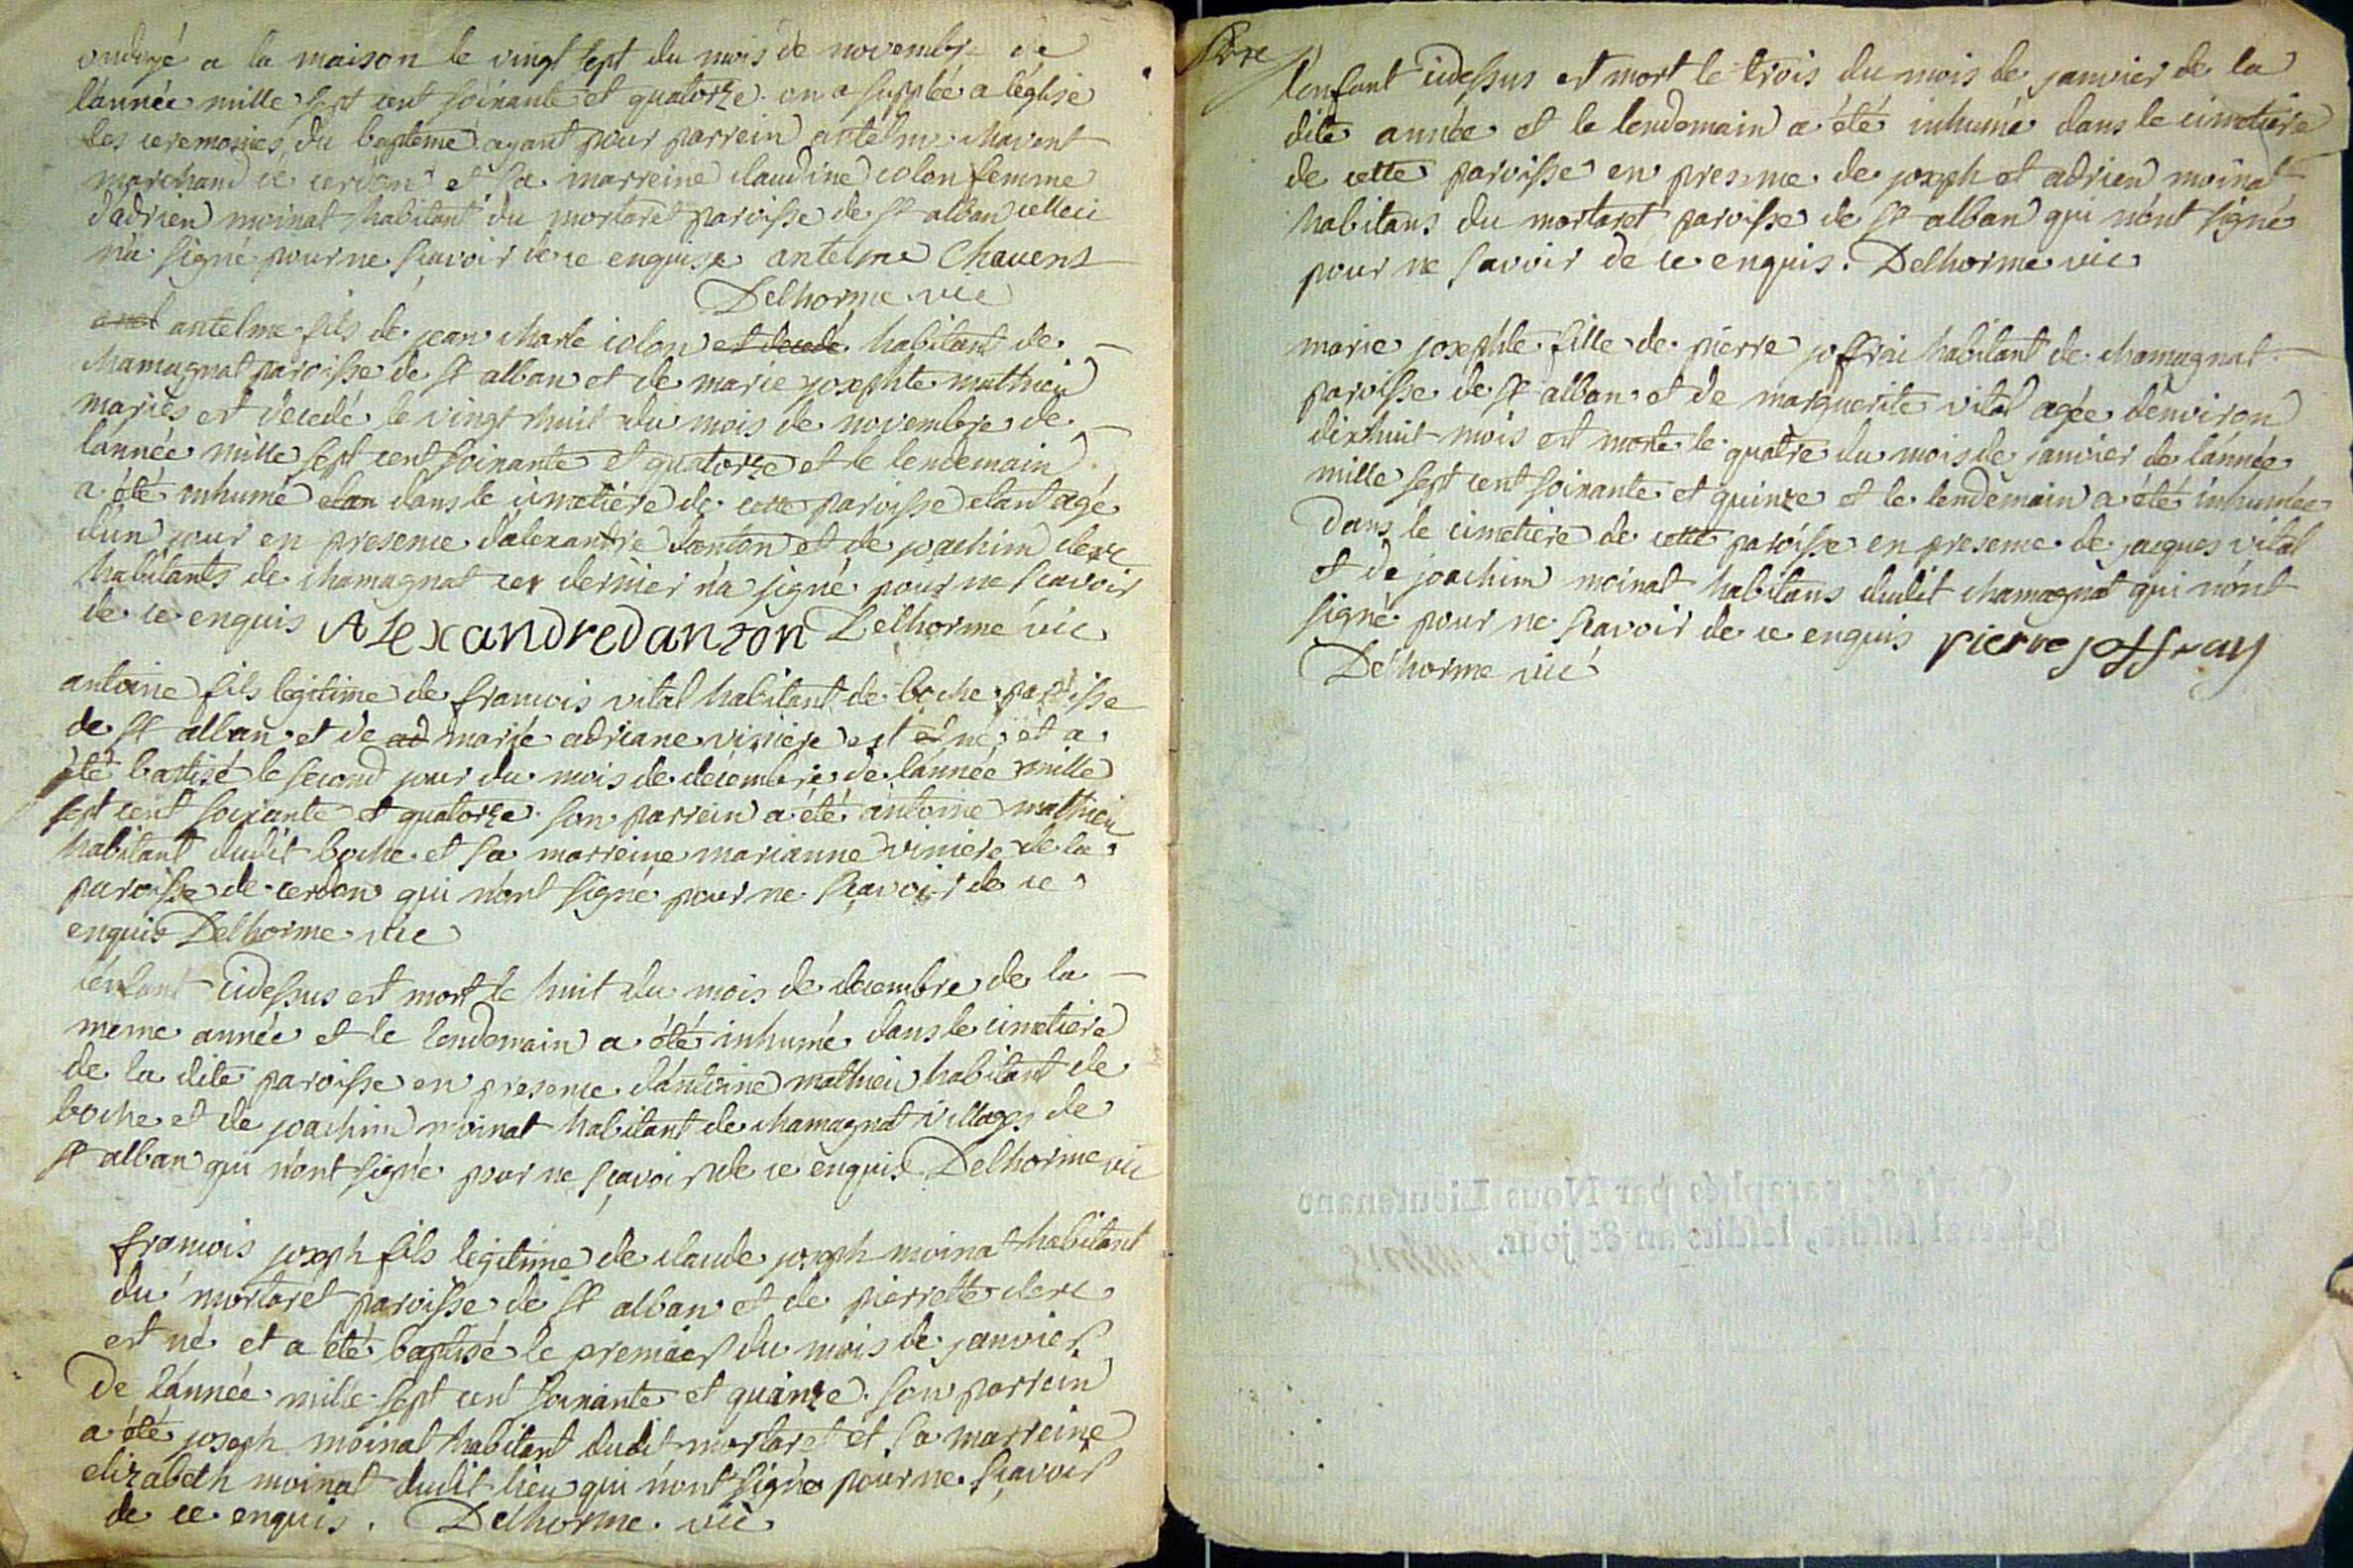 ondoyé a la maison le vingt sept du mois de novembre de
l'année mille sept cent soixante et quatorze on a supplée a l'église
les ceremonies du bapteme ayant pour parrein antelme chavent
marchand de cerdon et sa marreine claudine colon femme
d'adrien moinat habitant du mortaret paroisse de st alban celleci
n'a signé pour ne scavoir de ce enquise antelme Chavent
Delhorme vic
antelme fils de jean charle colon et decedé habitant de
chamagnat paroisse de st alban et de marie josephte mathieu
mariés est decedé le vingt huit du mois de novembre de
l'année mille sept cent soixante et quatorze et le lendemain
a été inhumé dans le cimetière de cette paroisse etant agé
d'un jour en presence d'alexandre danton et de joachim clerc
habitants de chamagnat ce dernier n'a signé pour ne scavoir
de ce enquis Alexandredanton Delhorme vic
antoine fils legitime de francois vital habitant de boche paroisse
de st alban et de ad marie adriane viniere est et né et a
été baptisé le second jour du mois de decembre de l'année mille
sept cent soixante et quatorze son parrein a été antoine mathieu
habitant dudit boche et sa marreine marianne viniere de la
paroisse de cerdon qui n'ont signé pour ne scavoir de ce
enquis Delhorme vic
l'enfant cidessus est mort le huit du mois de decembre de la
meme année et le lendemain a été inhumé dans le cimetiere
de la dite paroisse en presence d'antoine mathieu habitant de
boche et de joachim moinat habitant de chamagnat villages de
st alban qui n'ont signé pour ne scavoir de ce enquis Delhorme vic
francois joseph fils legitime de claude joseph moinat habitant
du mortaret paroisse de st alban et de pierrette clerc
est né et a été baptisé le premier du mois de janvier
de l'année mille sept cent soixante et quinze son parrein
a été joseph moinat habitant dudit mortaret et sa marreine
elizabeth moinat dudit lieu qui n'ont signé pour ne scavoir
de ce enquis. Delhorme vic
l'enfant cidessus est mort le trois du mois de janvier de la
dite année et le lendemain a été inhumé dans le cimetiere
de cette paroisse en presence de joseph et adrien moinat
habitans du mortaret paroisse de st alban qui n'ont signé
pour ne savoir de ce enquis. Delhorme vic
marie josephte fille de pierre joffrai habitant de chamagnat
paroisse de st alban et de marguerite vital agée d'environ
dixhuit mois est morte le quatre du mois de janvier de l'année
mille sept cent soixante et quinze et le lendemain a été inhumée
dans le cimetiere de cette paroisse en presence de jacques vital
et de joachim moinat habitans dudit chamagnat qui n'ont
signé pour ne scavoir de ce enquis pierre joffray
Delhorme vic